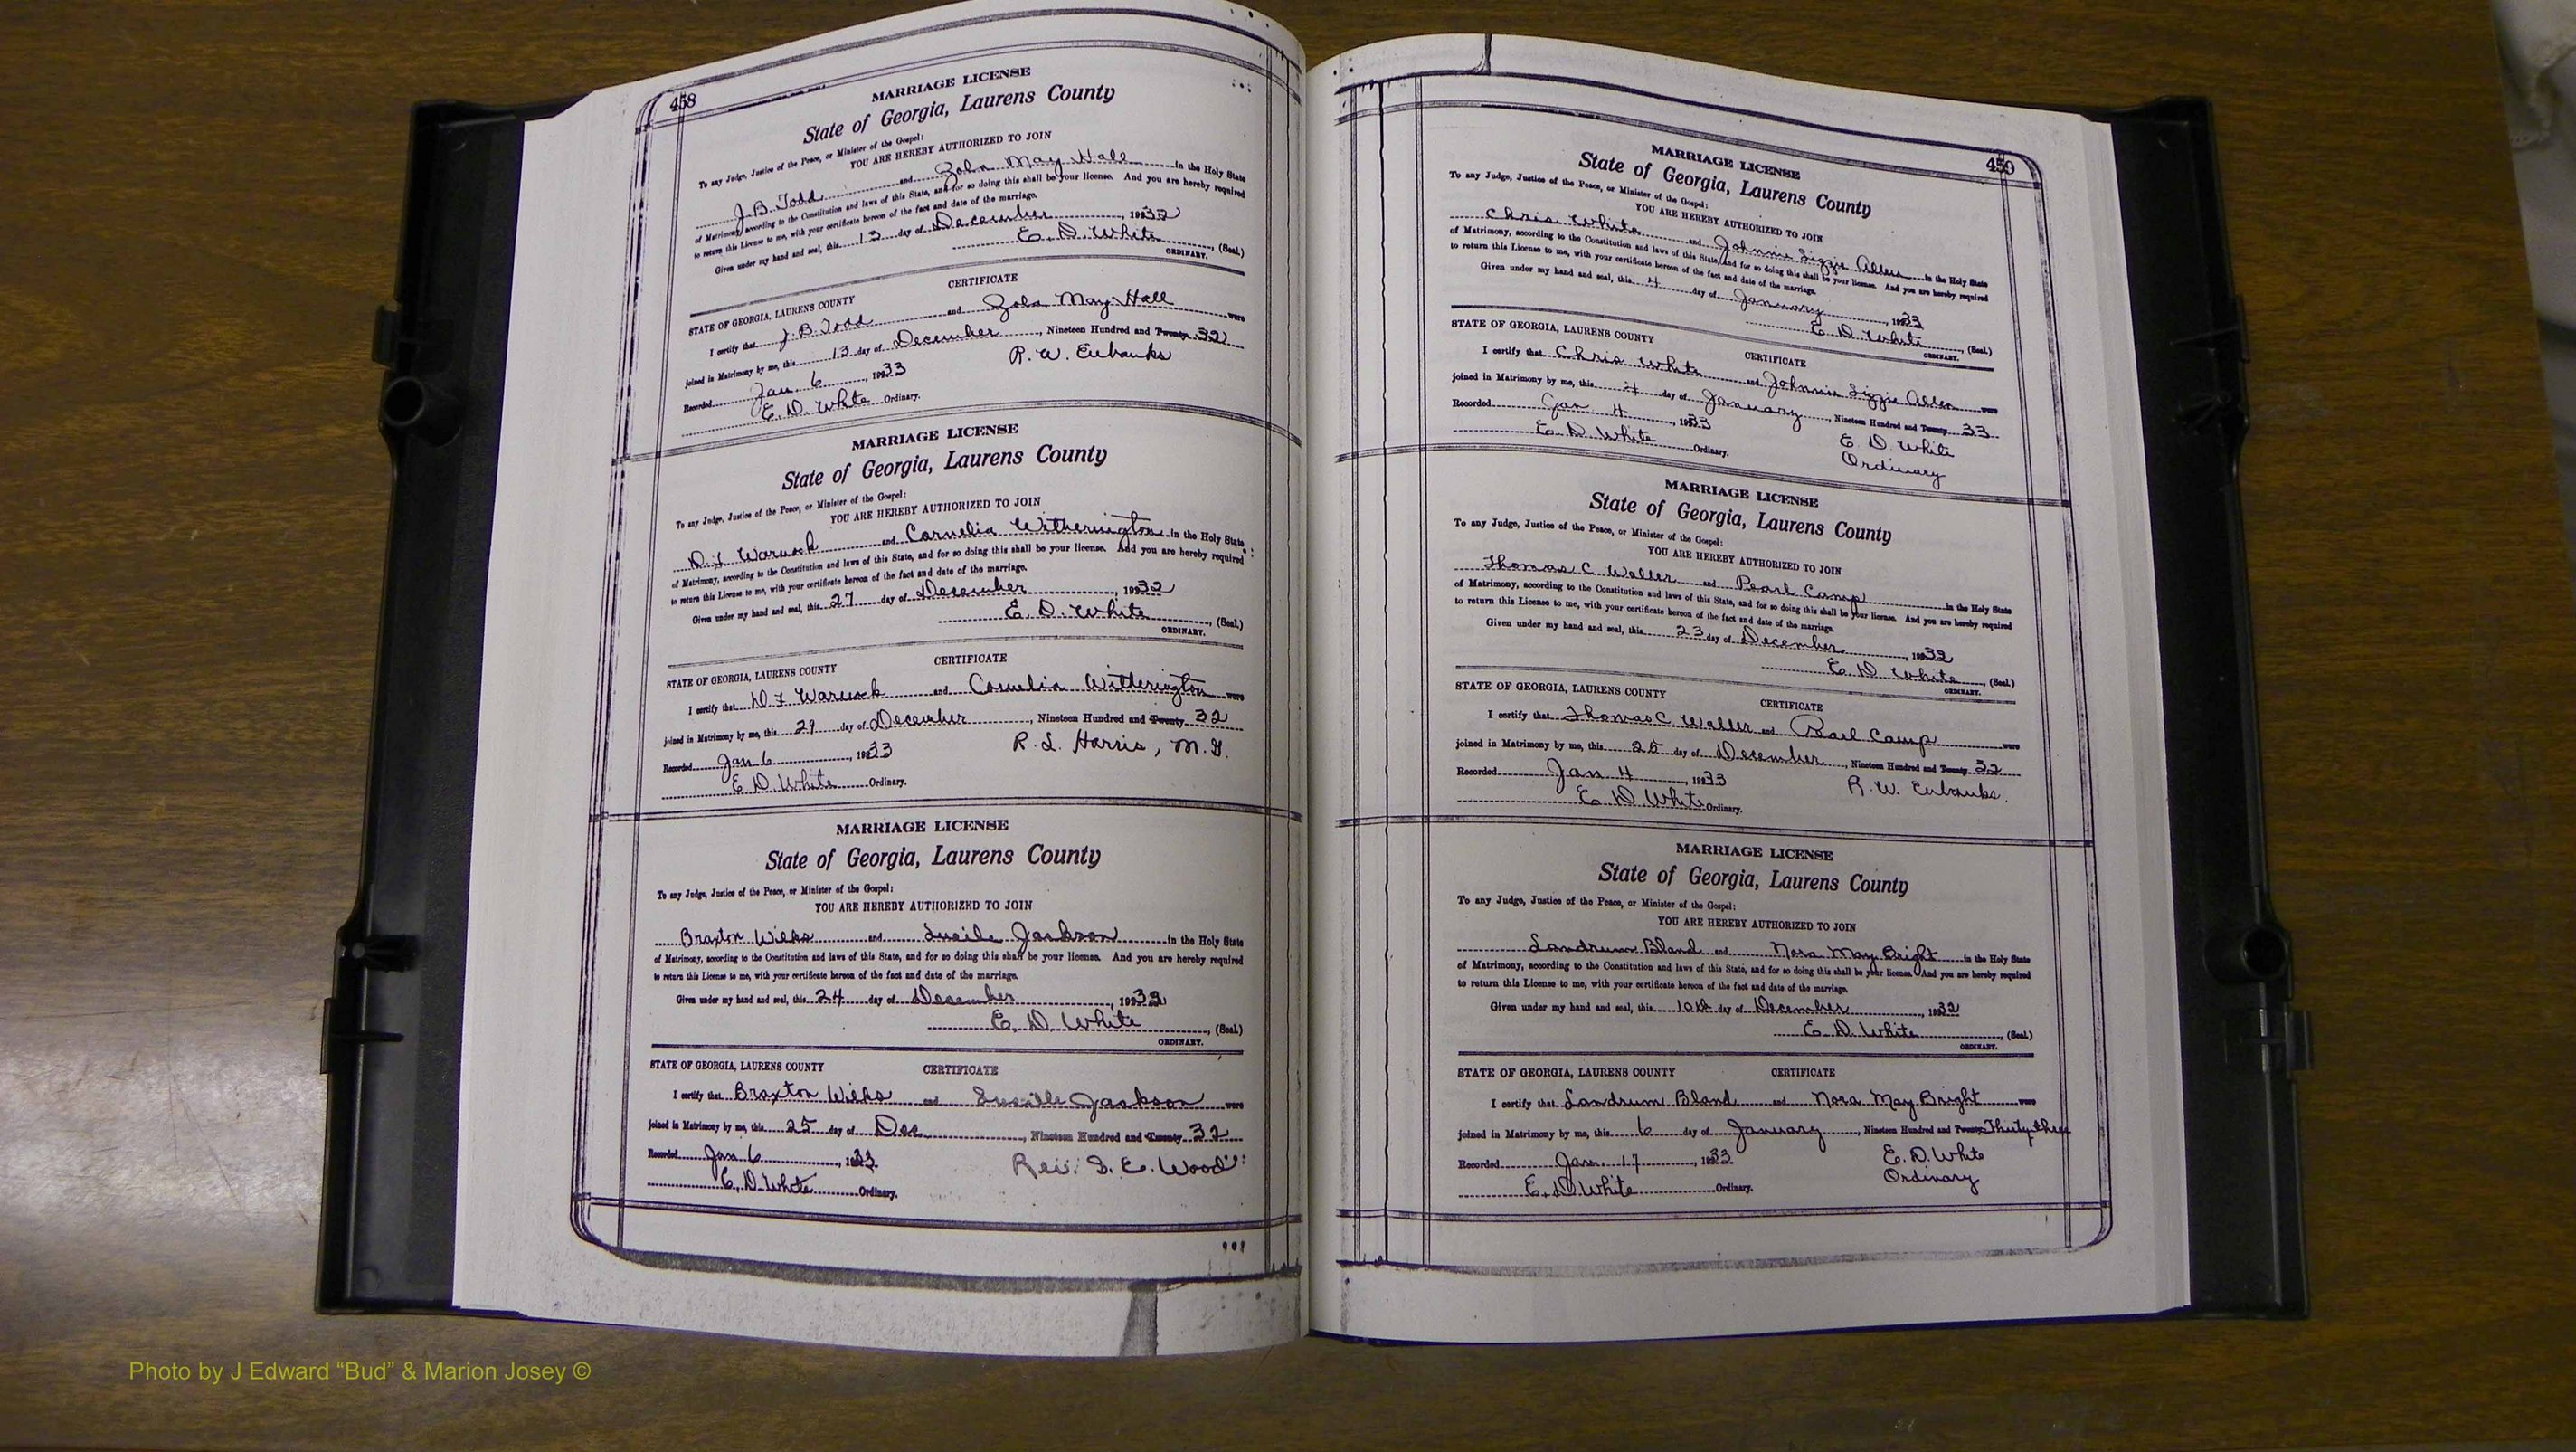 458
MARRIAGE LICENSE
State of Georgia, Laurens County
To any Judge, Justice of the Peace, or Minister of the Gospel:
YOU ARE HEREBY AUTHORIZED TO JOIN
J. B. Todd and Zola May Hall in the Holy State
of Matrimony, according to the Constitution and laws of this State, and for so doing this shall be your license. And you are hereby required
to return this License to me, with your certificate hereon of the fact and date of the marriage.
Given under my hand and seal, this 13 day of December, 1932
E. D. White, (Seal.)
ORDINARY.
CERTIFICATE
STATE OF GEORGIA, LAURENS COUNTY
I certify that J. B. Todd and Zola May Hall were
joined in Matrimony by me, this 13 day of December, Nineteen Hundred and Twenty 32
Recorded Jan. 6, 1933 R. W. Eubanks
E. D. White Ordinary.
MARRIAGE LICENSE
State of Georgia, Laurens County
To any Judge, Justice of the Peace, or Minister of the Gospel:
YOU ARE HEREBY AUTHORIZED TO JOIN
D. F. Warnock and Cornelia Witherington in the Holy State
of Matrimony, according to the Constitution and laws of this State, and for so doing this shall be your license. And you are hereby required
to return this License to me, with your certificate hereon of the fact and date of the marriage.
Given under my hand and seal, this 27 day of December, 1932
E. D. White, (Seal.)
ORDINARY.
CERTIFICATE
STATE OF GEORGIA, LAURENS COUNTY
I certify that D F Warnock and Cornelia Witherington were
joined in Matrimony by me, this 29 day of December, Nineteen Hundred and Twenty 32
Recorded Jan 6, 1933 R. L. Harris, M. G.
E D. White Ordinary.
MARRIAGE LICENSE
State of Georgia, Laurens County
To any Judge, Justice of the Peace, or Minister of the Gospel:
YOU ARE HEREBY AUTHORIZED TO JOIN
Braxton Wilks and Lucile Jackson in the Holy State
of Matrimony, according to the Constitution and laws of this State, and for so doing this shall be your license. And you are hereby required
to return this License to me, with your certificate hereon of the fact and date of the marriage.
Given under my hand and seal, this 24 day of December, 1932
E. D. White, (Seal.)
ORDINARY.
STATE OF GEORGIA, LAURENS COUNTY CERTIFICATE
I certify that Braxton Wilks and Lucille Jackson were
joined in Matrimony by me, this 25 day of Dec., Nineteen Hundred and Twenty 32
Recorded Jan 6, 1933 Rev. S. E. Wood
E. D. White Ordinary.
459
MARRIAGE LICENSE
State of Georgia, Laurens County
To any Judge, Justice of the Peace, or Minister of the Gospel:
YOU ARE HEREBY AUTHORIZED TO JOIN
Chris White and Johnnie Lizzie Allen in the Holy State
of Matrimony, according to the Constitution and laws of this State, and for so doing this shall be your license. And you are hereby required
to return this License to me, with your certificate hereon of the fact and date of the marriage.
Given under my hand and seal, this 4 day of January, 1933
E. D. White, (Seal.)
ORDINARY.
STATE OF GEORGIA, LAURENS COUNTY CERTIFICATE
I certify that Chris White and Johnnie Lizzie Allen were
joined in Matrimony by me, this 4 day of January, Nineteen Hundred and Twenty 33
Recorded Jan 4, 1933 E. D. White
E. D. White Ordinary. Ordinary
MARRIAGE LICENSE
State of Georgia, Laurens County
To any Judge, Justice of the Peace, or Minister of the Gospel:
YOU ARE HEREBY AUTHORIZED TO JOIN
Thomas C Waller and Pearl Camp in the Holy State
of Matrimony, according to the Constitution and laws of this State, and for so doing this shall be your license. And you are hereby required
to return this License to me, with your certificate hereon of the fact and date of the marriage.
Given under my hand and seal, this 23 day of December, 1932
E D White, (Seal.)
ORDINARY.
STATE OF GEORGIA, LAURENS COUNTY CERTIFICATE
I certify that Thomas C Waller and Pearl Camp were
joined in Matrimony by me, this 25 day of December, Nineteen Hundred and Twenty 32
Recorded Jan 4, 1933 R. W. Eubanks.
E D White Ordinary.
MARRIAGE LICENSE
State of Georgia, Laurens County
To any Judge, Justice of the Peace, or Minister of the Gospel:
YOU ARE HEREBY AUTHORIZED TO JOIN
Landrum Bland and Nora May Bright in the Holy State
of Matrimony, according to the Constitution and laws of this State, and for so doing this shall be your license. And you are hereby required
to return this License to me, with your certificate hereon of the fact and date of the marriage.
Given under my hand and seal, this 10th day of December, 1932
E. D. White, (Seal.)
ORDINARY.
STATE OF GEORGIA, LAURENS COUNTY CERTIFICATE
I certify that Landrum Bland and Nora May Bright were
joined in Matrimony by me, this 6 day of January, Nineteen Hundred and Twenty Thirty three
Recorded Jan. 17, 1933 E. D. White
E. D. White Ordinary. Ordinary
Photo by J Edward “Bud” & Marion Josey ©